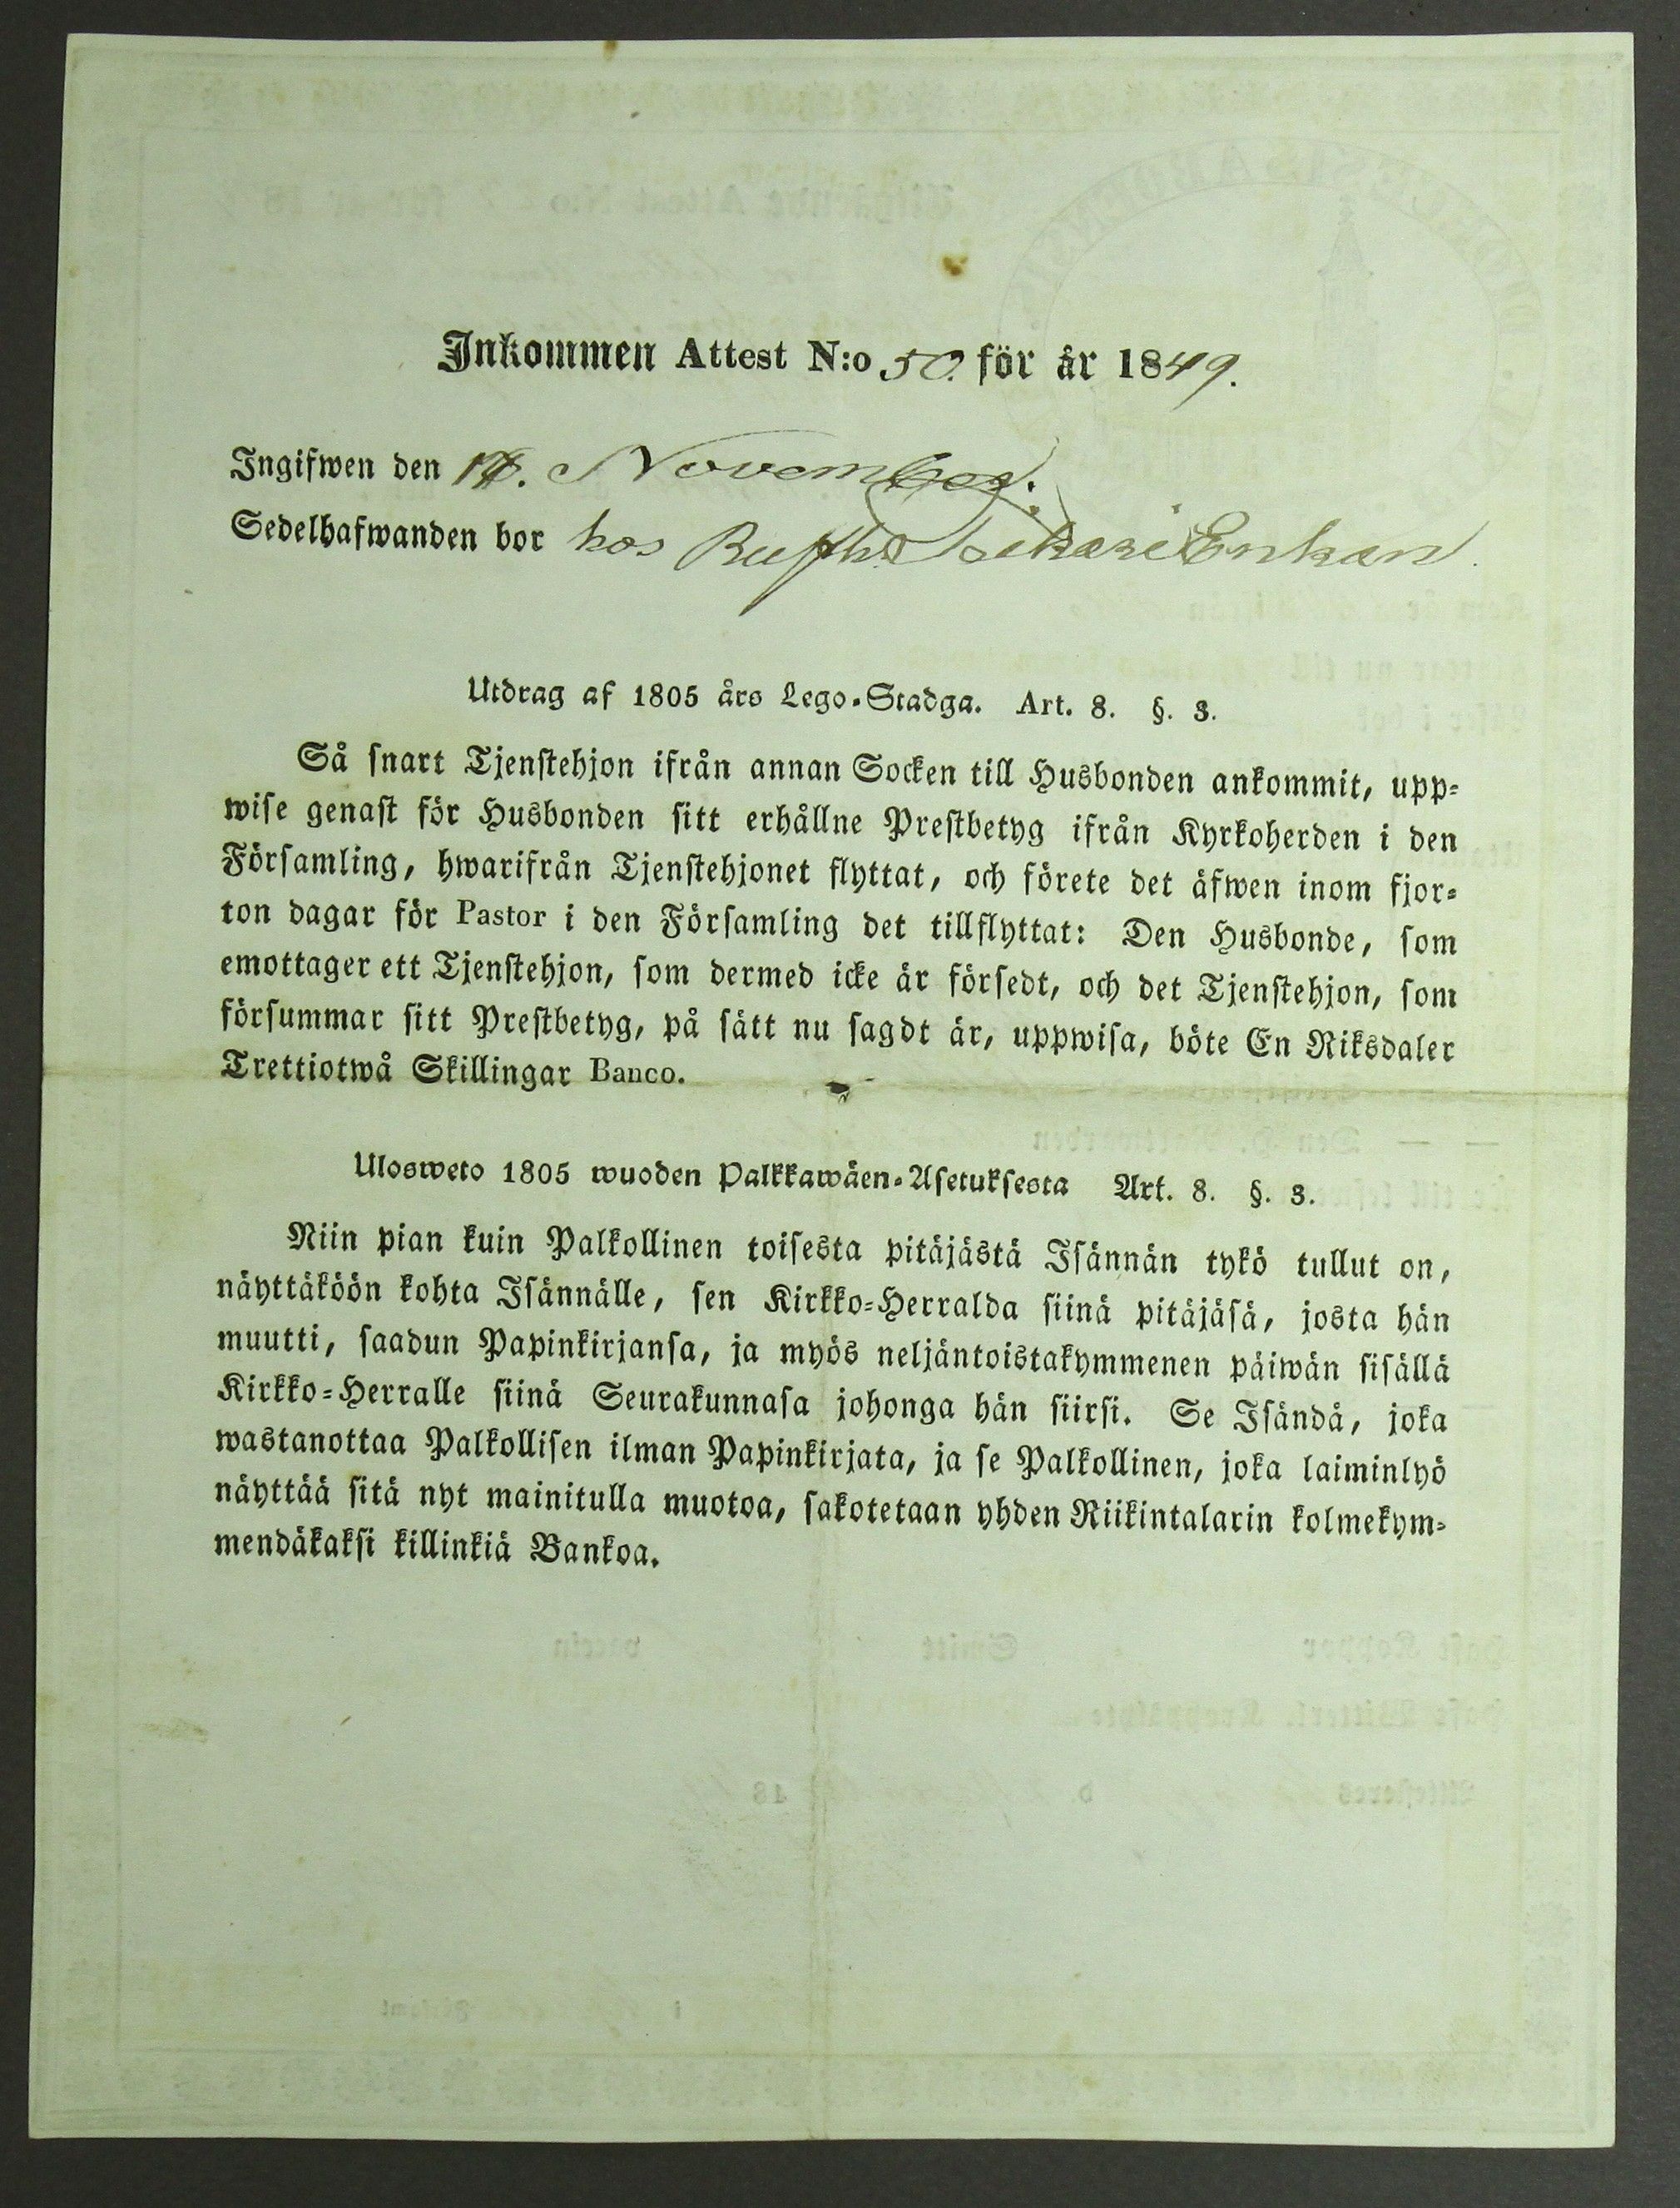 Inkommen Attest N:o 50. för år 1849.
Ingifwen den November.
Sedelhafwanden bor hos Enkan
Utdrag af 1805 års Lego-Stadga. Art. 8. §. 3.
Så snart Tjenstehjon ifrån annan Socken till Husbonden ankommit, upp-
wise genast för Husbonden sitt erhållne Prestbetyg ifrån Kyrkoherden i den
Församling, hwarifrån Tjenstehjonet flyttat, och förete det äfwen inom fjor-
ton dagar för Pastor i den Församling det tillflyttat: Den Husbonde, som
emottager ett Tjenstehjon, som dermed icke är försedt, och det Tjenstehjon, som
försummar sitt Prestbetyg, på sätt nu sagdt är, uppwisa, böte En Riksdaler
Trettiotwå Skillingar Banco.
Ulosweto 1805 wuoden Palkkawäen-Asetuksesta Art. 8. §. 3.
Niin pian kuin Palkollinen toisesta pitäjästä Isännän tykö tullut on,
näyttäköön kohta Isännälle, sen Kirkko-Herralda siinä pitäjäsä, josta hän
muutti, saadun Papinkirjansa, ja myös neljäntoistakymmenen päiwän sisällä
Kirkko-Herralle siinä Seurakunnasa johonga hän siirsi. Se Isändä, joka
wastanottaa Palkollisen ilman Papinkirjata, ja se Palkollinen, joka laiminlyö
näyttää sitä nyt mainitulla muotoa, sakotetaan yhden Riikintalarin kolmekym-
mendäkaksi killinkiä Bankoa.